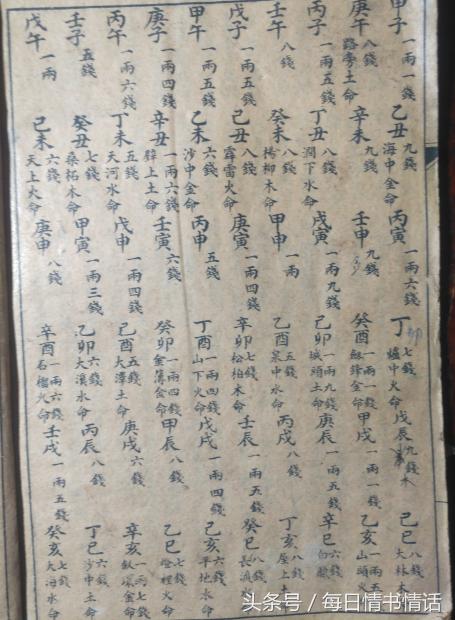 甲子 一兩一錢 乙丑 九錢 海中金命 丙寅 一兩六錢 丁卯 七錢 爐中火命 戊辰 九錢 木 己巳 八錢 大林木
庚午 八錢 路旁土命 辛未 九錢 壬申 九錢 癸酉 一兩一錢 劍鋒金命 甲戌 一兩一錢 乙亥 一兩五 山頭火
丙子 一兩五錢 丁丑 八錢 潤下水命 戊寅 一兩九錢 己卯 一兩九錢 城頭土命 庚辰 一兩五錢 辛巳 六錢 白
壬午 八錢 癸未 八錢 楊柳木命 甲申 一兩 乙酉 五錢 泉中水命 丙戌 八錢 丁亥 八錢 屋上土
戊子 一兩五錢 己丑 八錢 霹雷火命 庚寅 一兩四錢 辛卯 七錢 松柏木命 壬辰 一兩五錢 癸巳 八錢 長流
甲午 一兩五錢 乙未 六錢 沙中金命 丙申 五錢 丁酉 一兩四錢 山下火命 戊戌 一兩四錢 己亥 六錢 平地木命
庚子 一兩四錢 辛丑 一兩六錢 壁上土命 壬寅 六錢 癸卯 一兩四錢 金簿金命 甲辰 八錢 乙巳 七錢 燈裡火命
丙午 一兩六錢 丁未 五錢 天河水命 戊申 一兩四錢 己酉 五錢 大澤土命 庚戌 六錢 辛亥 一兩七錢 釵環金命
壬子 五錢 癸丑 七錢 桑柘木命 甲寅 一兩三錢 乙卯 六錢 大溪水命 丙辰 八錢 丁巳 六錢 沙中土命
戊午 一兩 己未 六錢 天上火命 庚申 八錢 辛酉 一兩六錢 石榴火命 壬戌 一兩五錢 癸亥 七錢 大海水命
头条号 / 每日情书情话